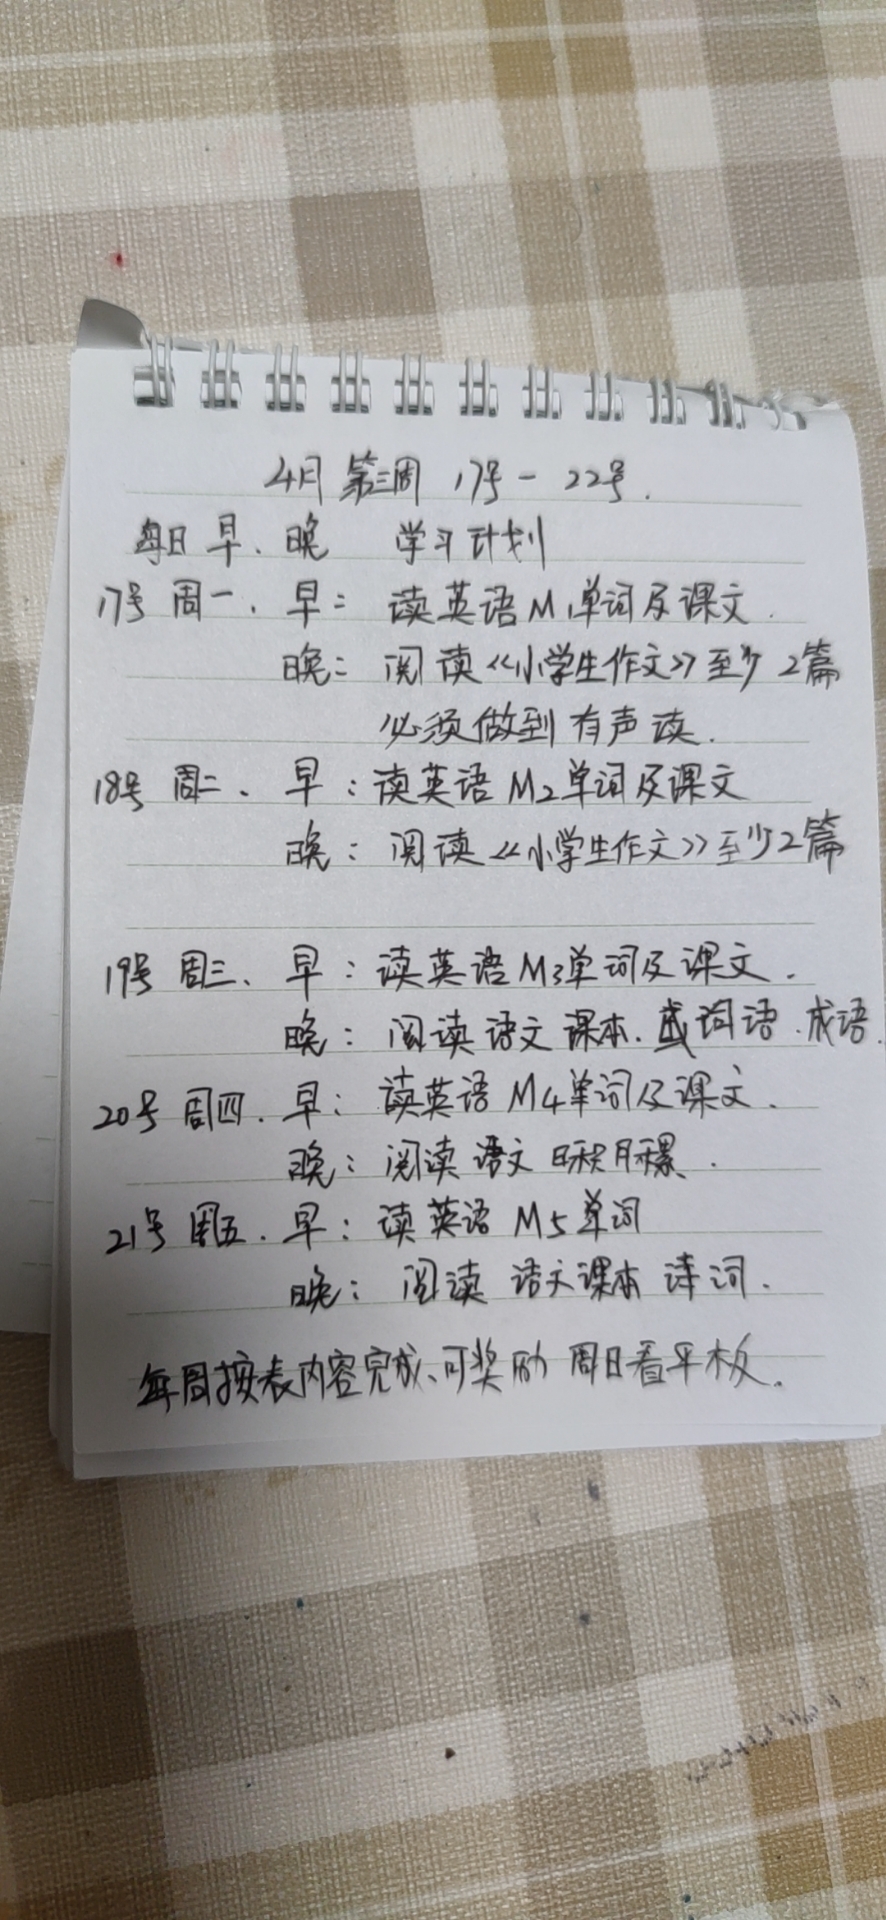 4月第三周 17号-22号.
每日早、晚 学习计划
17号 周一. 早: 读英语M1单词及课文.
晚: 阅读《小学生作文》至少2篇
必须做到有声读.
18号 周二、早: 读英语M2单词及课文
晚: 阅读《小学生作文》至少2篇
19号 周三、早: 读英语M3单词及课文.
晚: 阅读语文课本.或词语.成语.
20号 周四. 早: 读英语M4单词及课文.
晚: 阅读语文日积月累.
21号 周五. 早: 读英语M5单词
晚: 阅读 语文课本 诗词.
每周按表内容完成、可奖励 周日看平板.